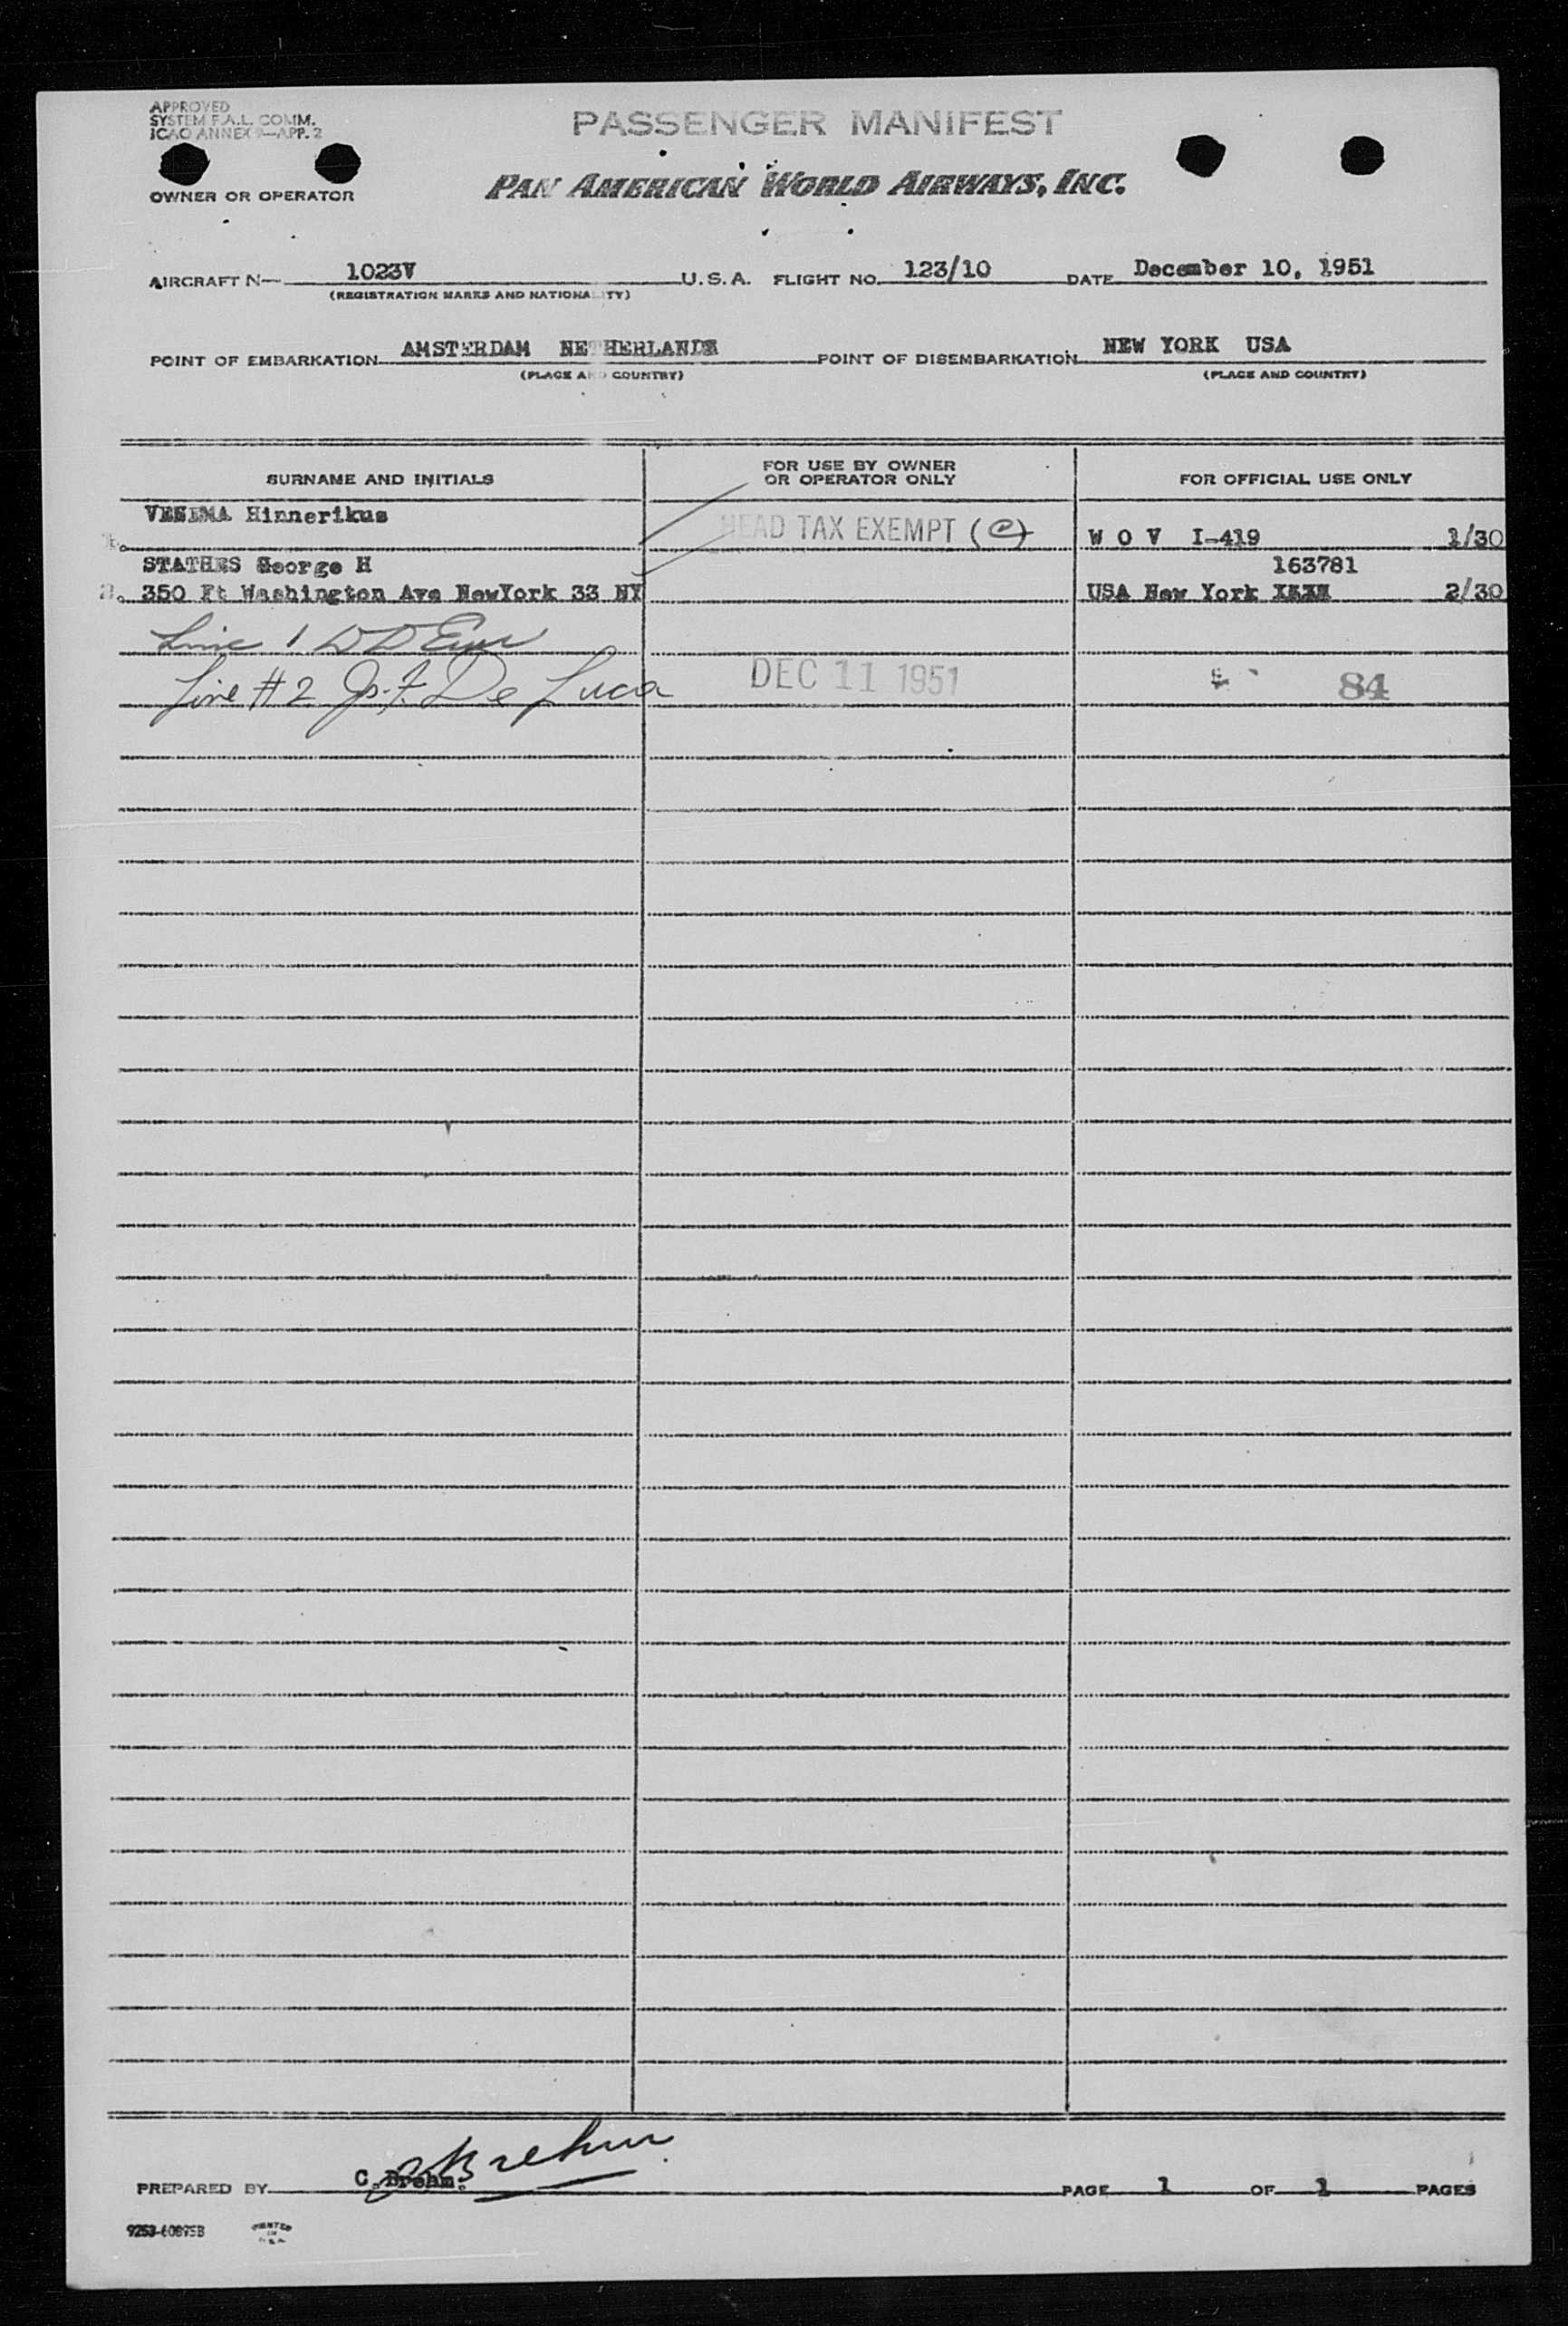 APPROVED
SYSTEM F.A.L. COMM.
ICAO ANNEX 9—APP. 2
PASSENGER MANIFEST
OWNER OR OPERATOR
PAN AMERICAN WORLD AIRWAYS, INC.
AIRCRAFT N— 1023V U.S.A. FLIGHT NO. 123/10 DATE December 10, 1951
(REGISTRATION MARKS AND NATIONALITY)
POINT OF EMBARKATION AMSTERDAM NETHERLANDS POINT OF DISEMBARKATION NEW YORK USA
(PLACE AND COUNTRY) (PLACE AND COUNTRY)
SURNAME AND INITIALS FOR USE BY OWNER OR OPERATOR ONLY FOR OFFICIAL USE ONLY
VENEMA Hinnerikus
HEAD TAX EXEMPT (e) W O V I-419 1/30
STATHES George H 163781
2. 350 Ft Washington Ave NewYork 33 NY USA New York 2/30
Line 1
Line #2 De Luca DEC 11 1951 84
PREPARED BY C.Brehm. PAGE 1 OF 1 PAGES
CBrehm
9253-60895B PRINTED IN U.S.A.